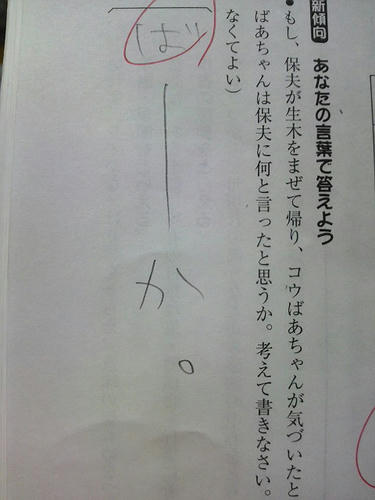 新傾向 あなたの言葉で答えよう
●もし、保夫が生木をまぜて帰り、コウばあちゃんが気づいたと
ばあちゃんは保夫に何と言ったと思うか。考えて書きなさい。
なくてよい）
ばーか。